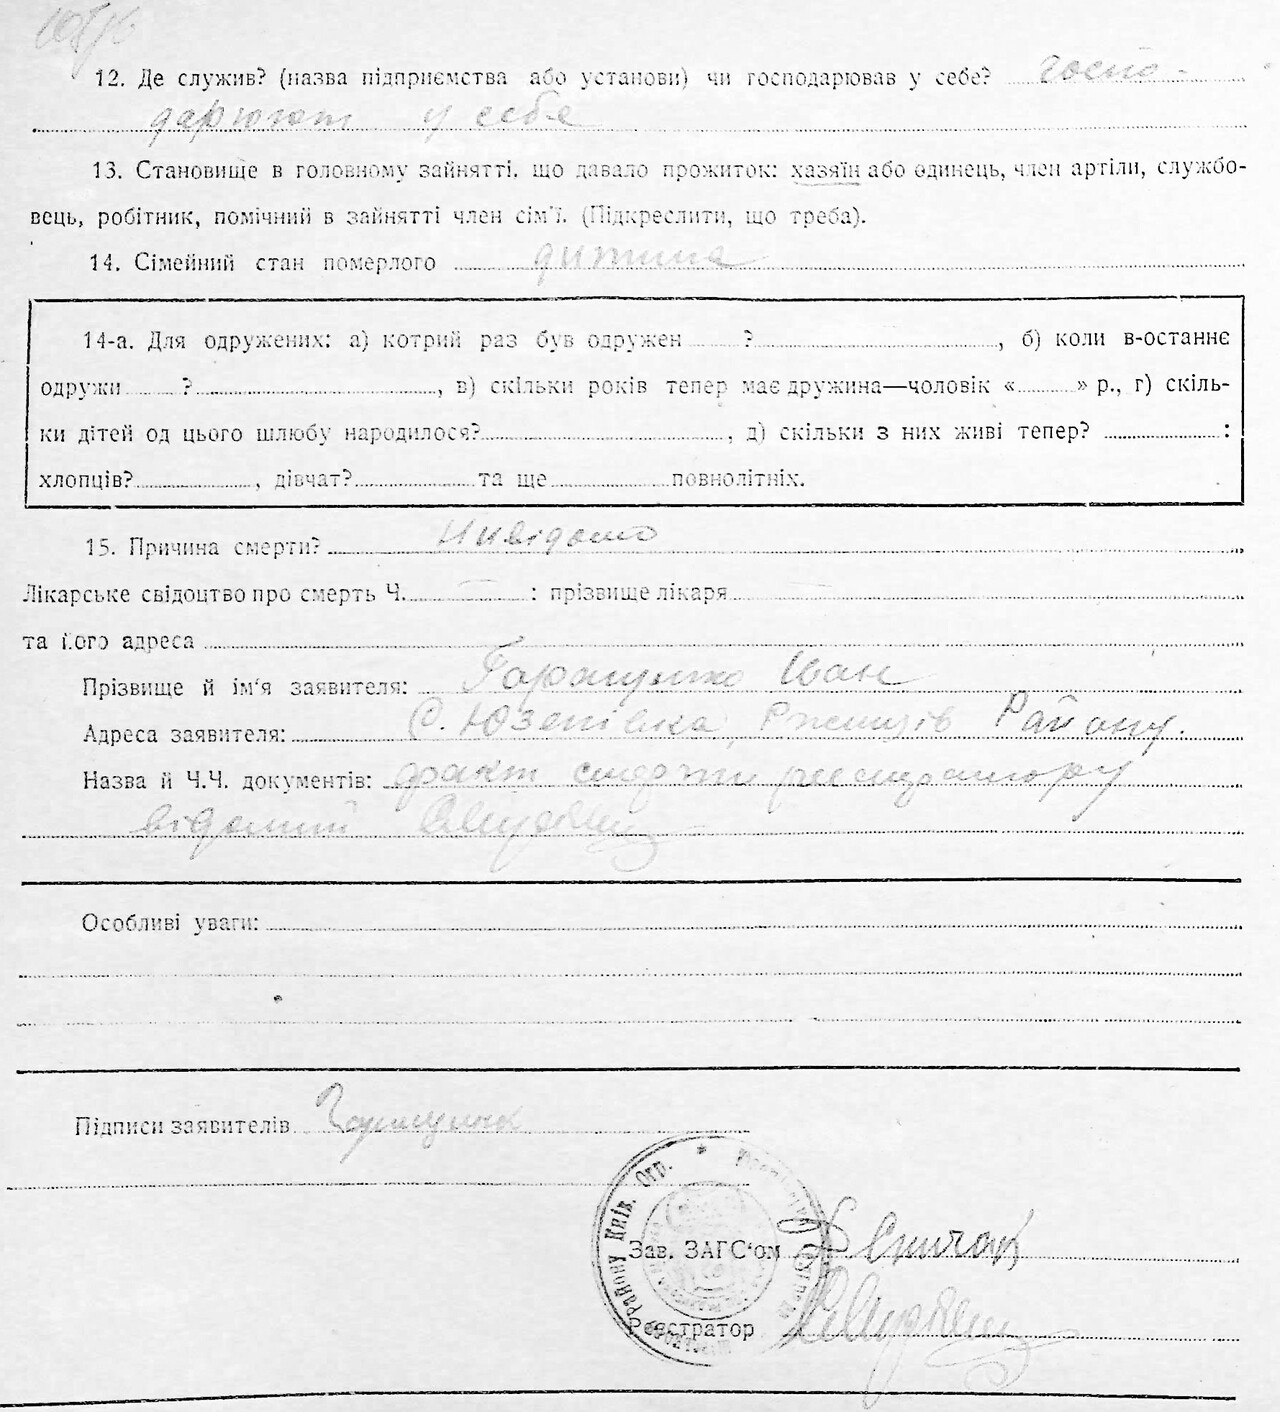 12. Де служив? (назва підприємства або установи) чи господарював у себе? госпо-
дарюют у себе
13. Становище в головному зайнятті, що давало прожиток: хазяїн або одинець, член артіли, службо-
вець, робітник, помічний в зайнятті член сім'ї. (Підкреслити, що треба).
14. Сімейний стан померлого дитина
14-а. Для одружених: а) котрий раз був одружен ? , б) коли в-останнє
одружи ? , в) скільки років тепер має дружина—чоловік « » р., г) скіль-
ки дітей од цього шлюбу народилося? , д) скільки з них живі тепер? :
хлопців? , дівчат? та ще повнолітніх.
15. Причина смерти? Нивідомо
Лікарське свідоцтво про смерть Ч. — : прізвище лікаря —
та його адреса
Прізвище й ім'я заявителя: Іван
Адреса заявителя: С. Юзепівка, Ржищів Району.
Назва й Ч.Ч. документів: факт смерти реєстратору
відомий
Особливі уваги:
Підписи заявителів
Району Київ. Окр. *
Зав. ЗАГС'ом
Реєстратор